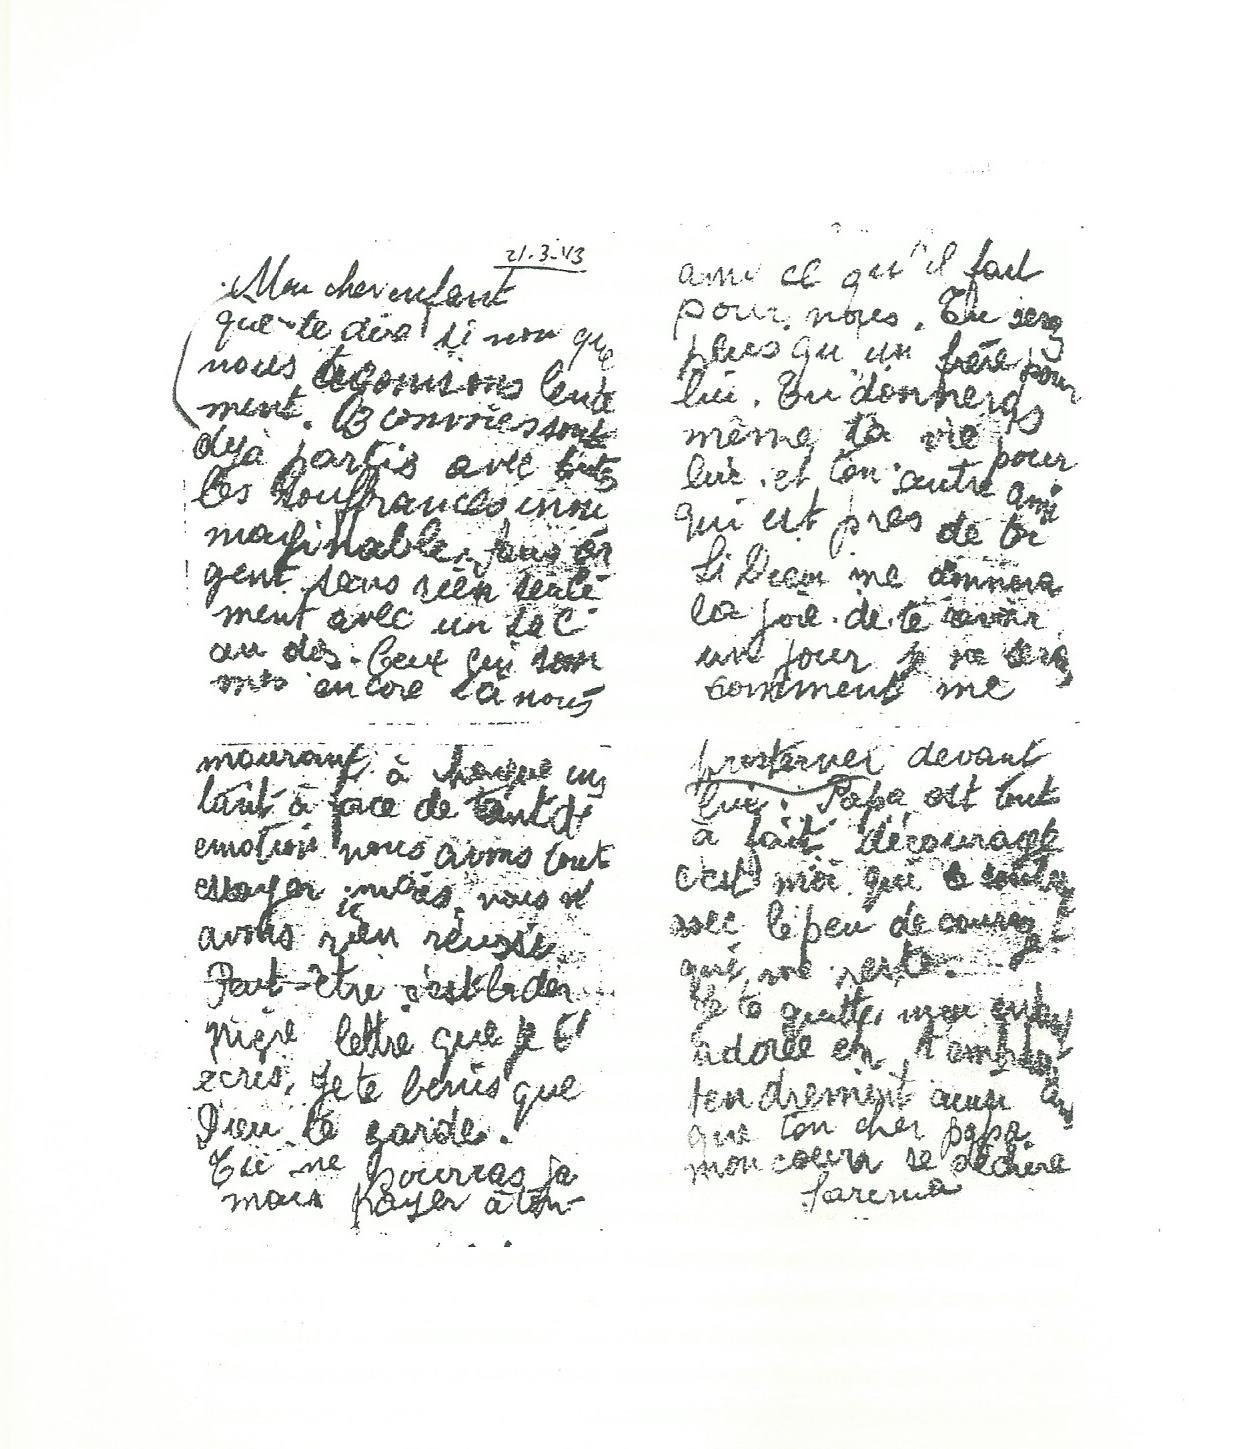 21.3.43
Mon cher enfant
que te dire si non que
nous agonisons lente
ment. 13 convoies sont
deja partis avec touts
les souffrances inou
maginable. sans ar
gent sans rien seule
ment avec un sac
au dos. Ceux qui som
mes encore là nous
mourant à chaque ins
tant à face de tant d'
emotion nous avons tout
essayer mais nous n'
avons rien réussi
Peut-être c'est la der
nière lettre que je t'
ecris. Je te benis que
Dieu te garde.
Tu ne pourras ja
mais payer à ton
ami ce qu'il fait
pour nous. Tu seras
plus qu'un frère pour
lui. Tu donneras
même ta vie pour
lui et ton autre ami
qui est pres de toi
Si Dieu me donnera
la joie de te
un jour je ne serai
comment me
prosterner devant
lui. Papa est tout
à fait découragé
c'est moi qui
avec le peu de courage
qui me reste.
Je te quitte, mon
adorée en
tendrement
que ton cher papa
mon coeur se déchire